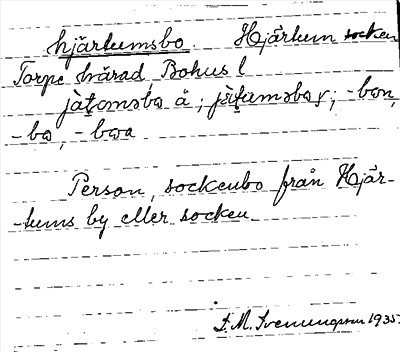 hjärtumsbo Hjärtum socken
Torpe härad, Bohus l
-bon,
-bo, -boa
Person, sockenbo från Hjär-
-tums by eller socken
F. M. Svenungsson 1935.